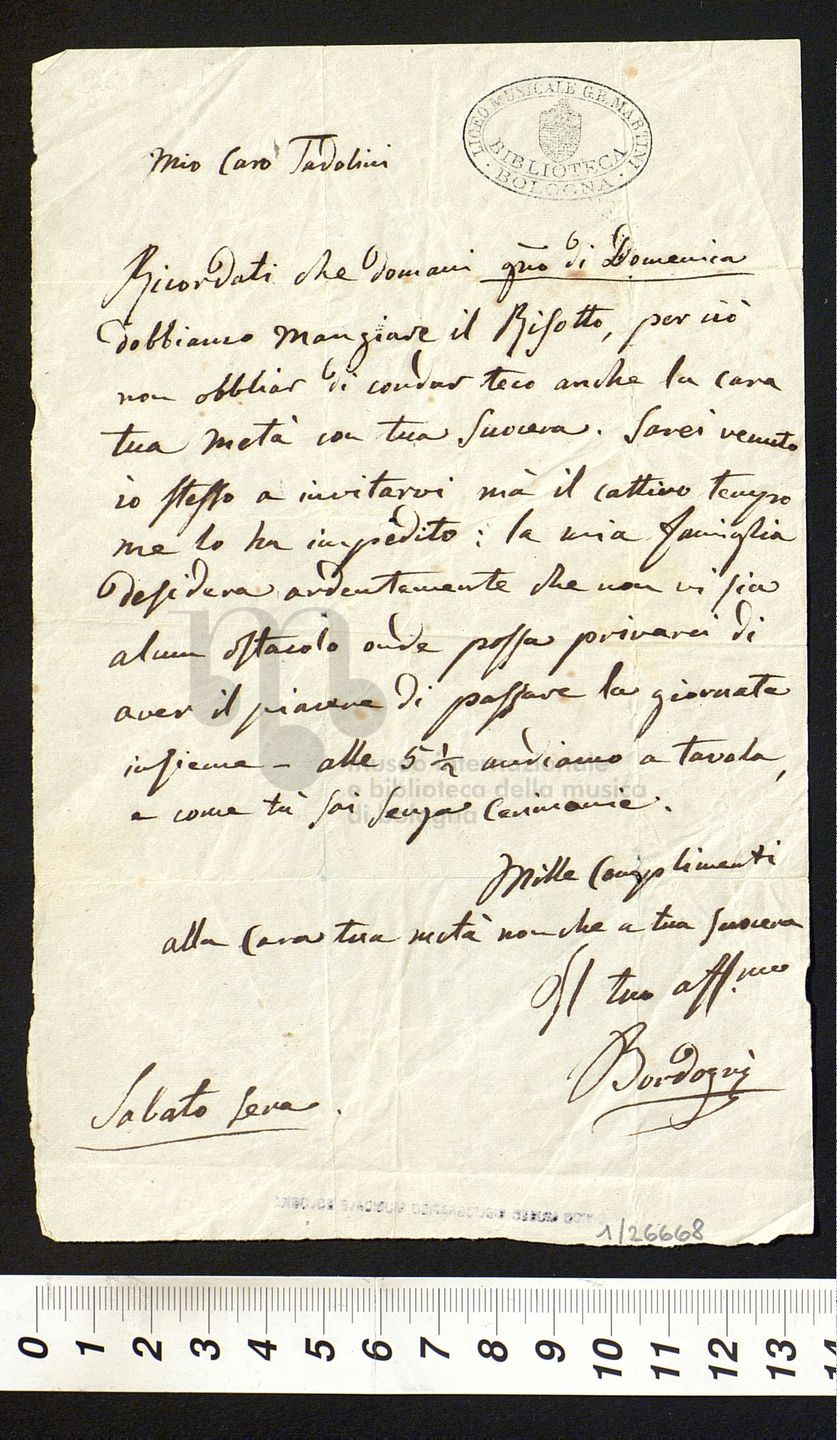 LICEO MUSICALE G.B. MARTINI
BIBLIOTECA
BOLOGNA
Mio Caro Tadolini
Ricordati che domani gno di Domenica
dobbiamo mangiare il Risotto, per ciò
non obbliar di condur teco anche la cara
tua metà con tua suocera. Sarei venuto
io stesso a invitarvi mà il cattivo tempo
me lo ha impedito: la mia famiglia
desidera ardentemente che non vi sia
alcun ostacolo onde possa privarci di
aver il piacere di passare la giornata
insieme - alle 5 1/2 andiamo a tavola,
e come tù sai senza Cerimonie.
Mille Complimenti
alla Cara tua metà non che a tua suocera
Il tuo aff.mo
Bordogni
Sabato sera.
museo internazionale
e biblioteca della musica
di bologna
1/26668
0 1 2 3 4 5 6 7 8 9 10 11 12 13 14